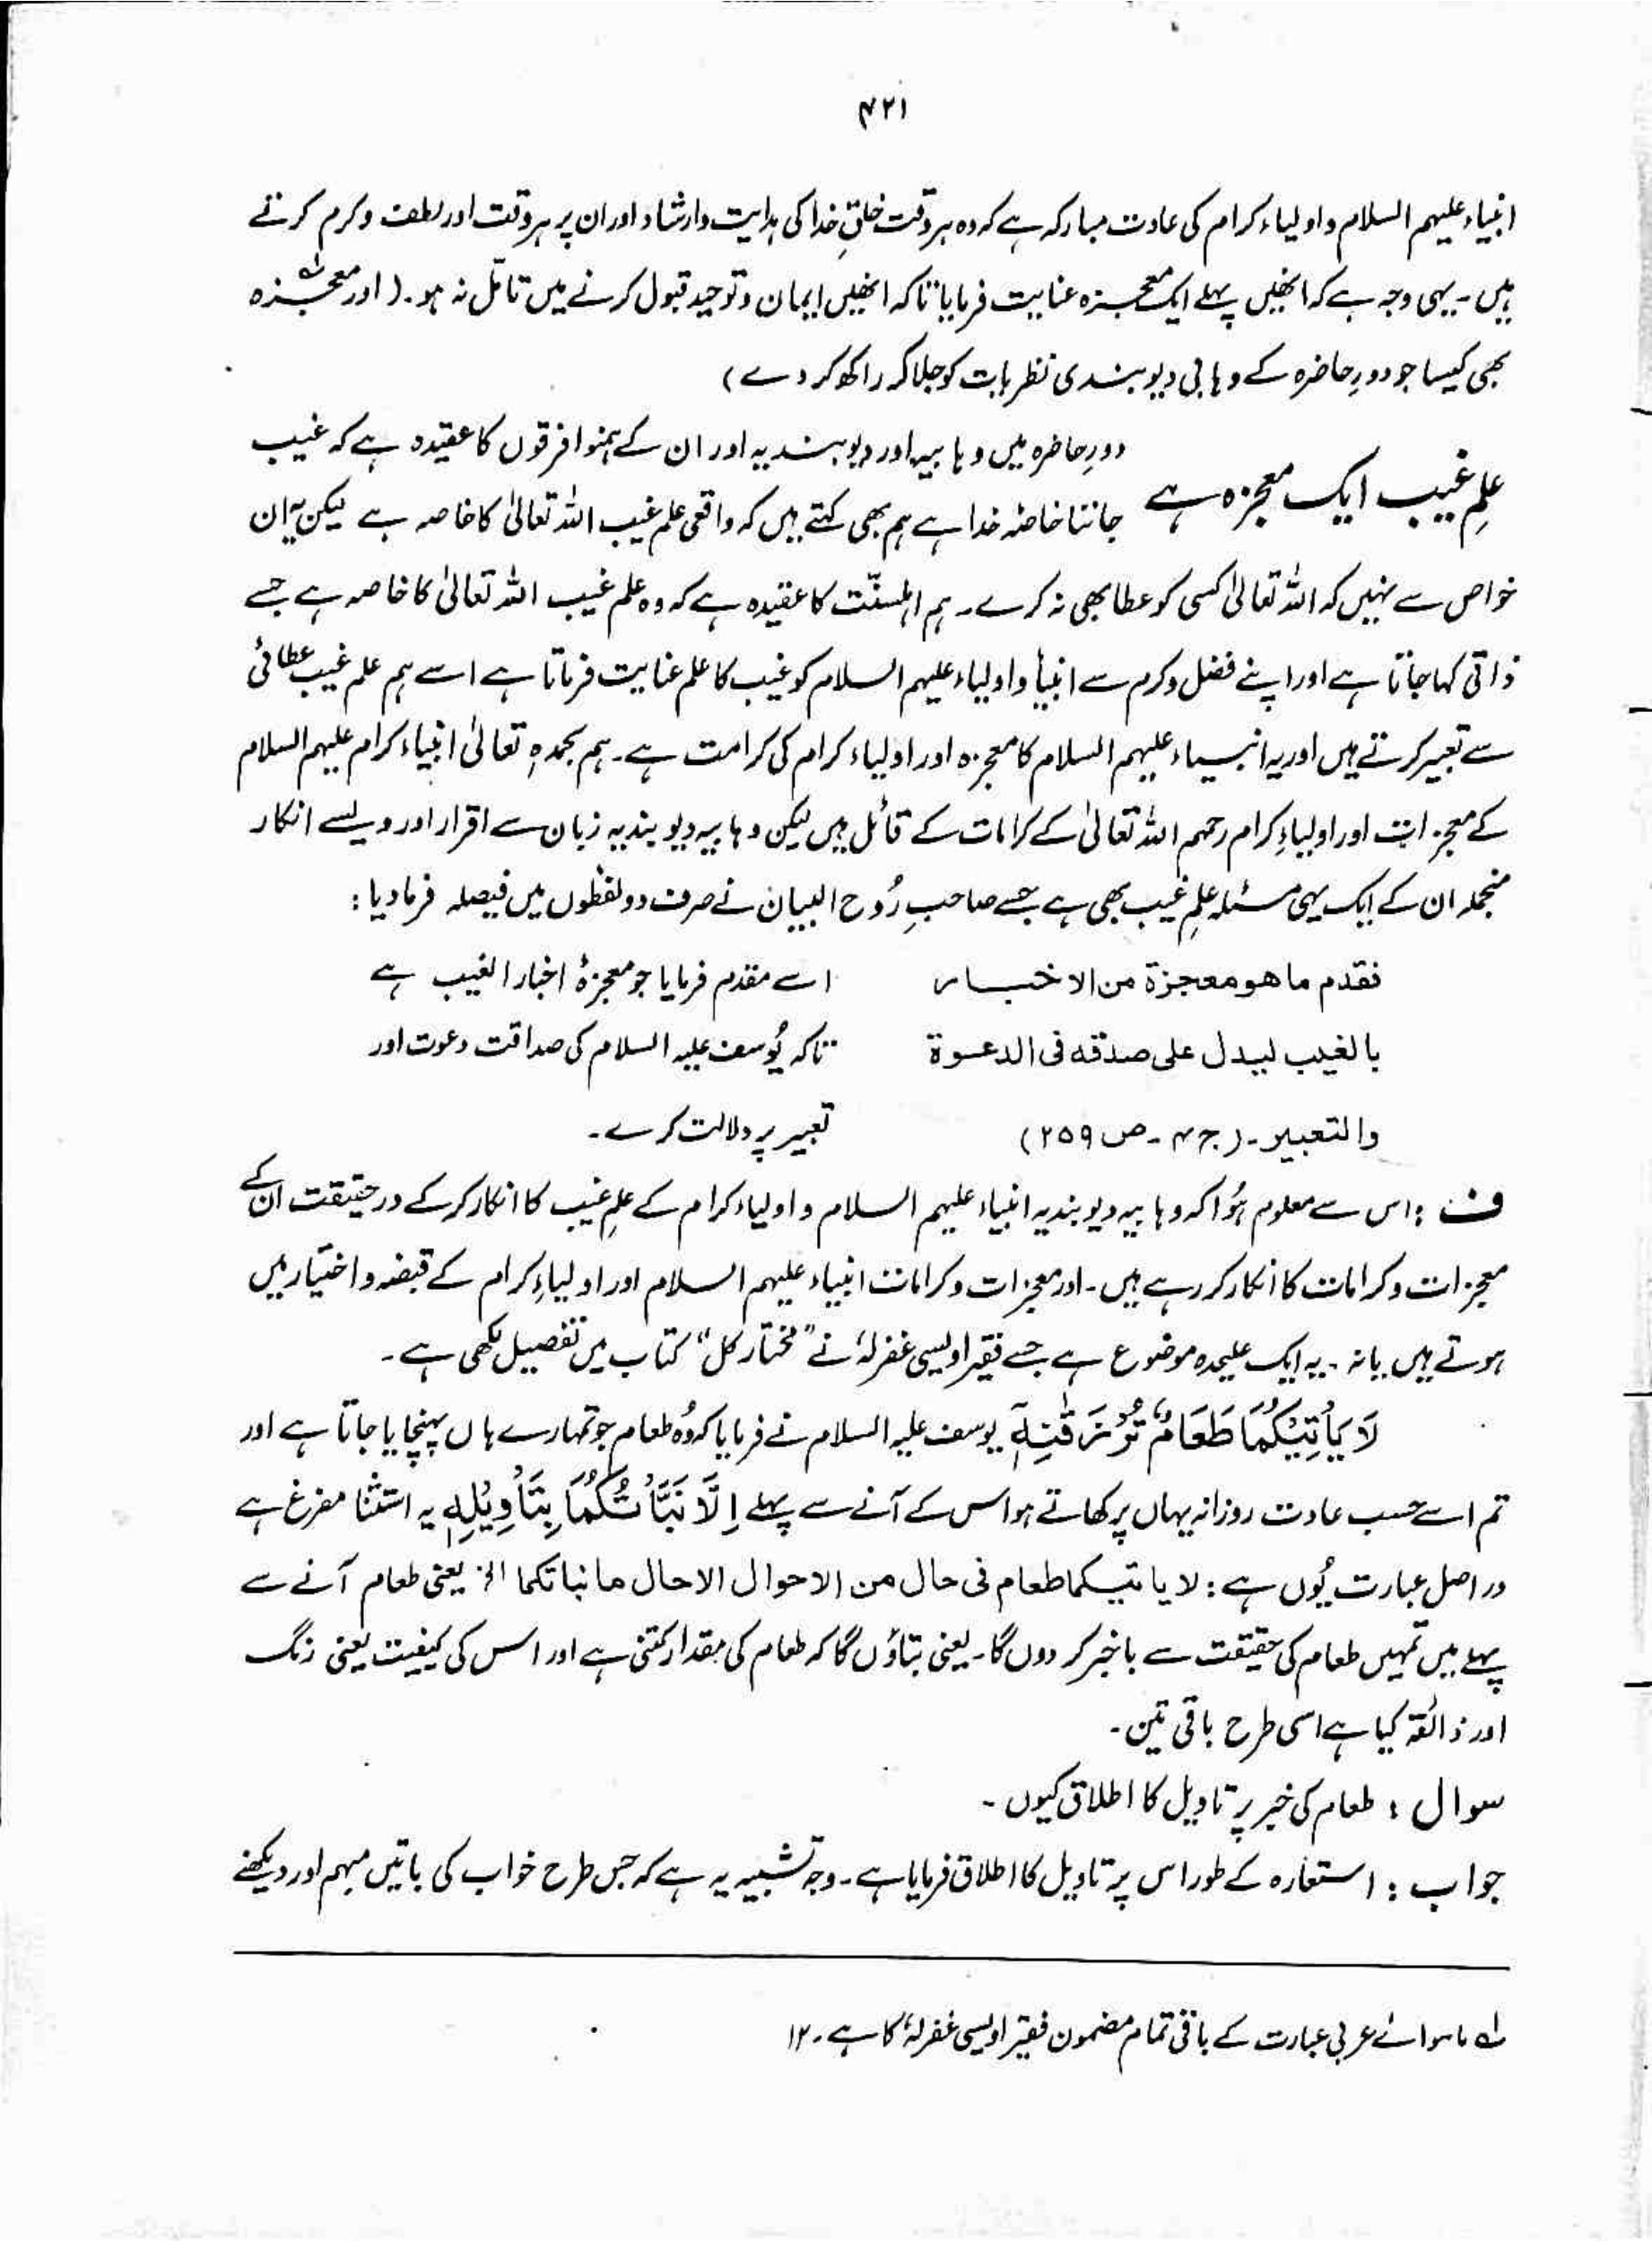 ۴۲۱
انبیاء علیہم السلام و اولیاء کرام کی عادت مبارکہ ہے کہ وہ ہر وقت خلقِ خدا کی ہدایت و ارشاد اور ان پر ہر وقت اور لطف و کرم کرتے
ہیں۔ یہی وجہ ہے کہ انھیں پہلے ایک معجزہ عنایت فرمایا تاکہ انھیں ایمان و توحید قبول کرنے میں تامّل نہ ہو۔ (اور معجزہ لہ
بھی کیسا جو دورِ حاضرہ کے وہابی دیوبندی نظریات کو جلا کر راکھ کر دے)
علمِ غیب ایک معجزہ ہے
دورِ حاضرہ میں وہابیہ اور دیوبندیہ اور ان کے ہمنوا فرقوں کا عقیدہ ہے کہ غیب
جاننا خاصۂ خدا ہے ہم بھی کہتے ہیں کہ واقعی علم غیب اللہ تعالیٰ کا خاصہ ہے لیکن یہ ان
خواص سے نہیں کہ اللہ تعالیٰ کسی کو عطا بھی نہ کرے۔ ہم اہلسنّت کا عقیدہ ہے کہ وہ علم غیب اللہ تعالیٰ کا خاصہ ہے جسے
ذاتی کہا جاتا ہے اور اپنے فضل و کرم سے انبیأ و اولیاء علیہم السلام کو غیب کا علم عنایت فرماتا ہے اسے ہم علم غیب عطائی
سے تعبیر کرتے ہیں اور یہ انبیاء علیہم السلام کا معجزہ اور اولیاء کرام کی کرامت ہے۔ ہم بحمدہٖ تعالیٰ انبیاء کرام علیہم السلام
کے معجزات اور اولیاءِ کرام رحمہم اللہ تعالیٰ کے کرامات کے قائل ہیں لیکن وہابیہ دیوبندیہ زبان سے اقرار اور ویسے انکار
منجملہ ان کے ایک یہی مسئلہ علمِ غیب بھی ہے جسے صاحبِ رُوح البیان نے صرف دو لفظوں میں فیصلہ فرما دیا :
فقدم ما هو معجزة من الاخبار
اسے مقدم فرمایا جو معجزۂ اخبار الغیب ہے
بالغیب لیدل علی صدقه فی الدعوة
تاکہ یُوسف علیہ السلام کی صداقت دعوت اور
والتعبیر۔ (ج ۴۔ ص ۲۵۹)
تعبیر پر دلالت کرے۔
ف : اس سے معلوم ہُوا کہ وہابیہ دیوبندیہ انبیاء علیہم السلام و اولیاء کرام کے علمِ غیب کا انکار کر کے درحقیقت ان کے
معجزات و کرامات کا انکار کر رہے ہیں۔ اور معجزات و کرامات انبیاء علیہم السلام اور اولیاءِ کرام کے قبضہ و اختیار میں
ہوتے ہیں یا نہ۔ یہ ایک علیحدہ موضوع ہے جسے فقیر اویسی غفرلہٗ نے "مختار کل" کتاب میں تفصیل لکھی ہے۔
لَا يَأْتِيْكُمَا طَعَامٌ تُرْزَقٰنِهٖٓ یوسف علیہ السلام نے فرمایا کہ وُہ طعام جو تمہارے ہاں پہنچایا جاتا ہے اور
تم اسے حسب عادت روزانہ یہاں پر کھاتے ہو اس کے آنے سے پہلے اِلَّا نَبَّأْتُكُمَا بِتَأْوِيْلِهٖ یہ استثنا مفرغ ہے
در اصل عبارت یُوں ہے : لا یاتیکما طعام فی حال من الاحوال الا حال ما نباتکما الخ یعنی طعام آنے سے
پہلے میں تمہیں طعام کی حقیقت سے باخبر کر دوں گا۔ یعنی بتاؤں گا کہ طعام کی مقدار کتنی ہے اور اس کی کیفیت یعنی رنگ
اور ذائقہ کیا ہے اسی طرح باقی تین۔
سوال : طعام کی خبر پر تاویل کا اطلاق کیوں۔
جواب : استعارہ کے طور اس پر تاویل کا اطلاق فرمایا ہے۔ وجہ تشبیہ یہ ہے کہ جس طرح خواب کی باتیں مبہم اور دیکھنے
لہ ماسوائے عربی عبارت کے باقی تمام مضمون فقیر اویسی غفرلہٗ کا ہے۔ ۱۲